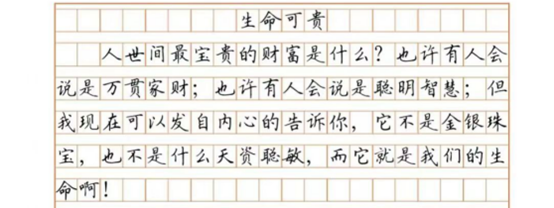 生命可贵
人世间最宝贵的财富是什么？也许有人会
说是万贯家财；也许有人会说是聪明智慧；但
我现在可以发自内心的告诉你，它不是金银珠
宝，也不是什么天资聪敏，而它就是我们的生
命啊！